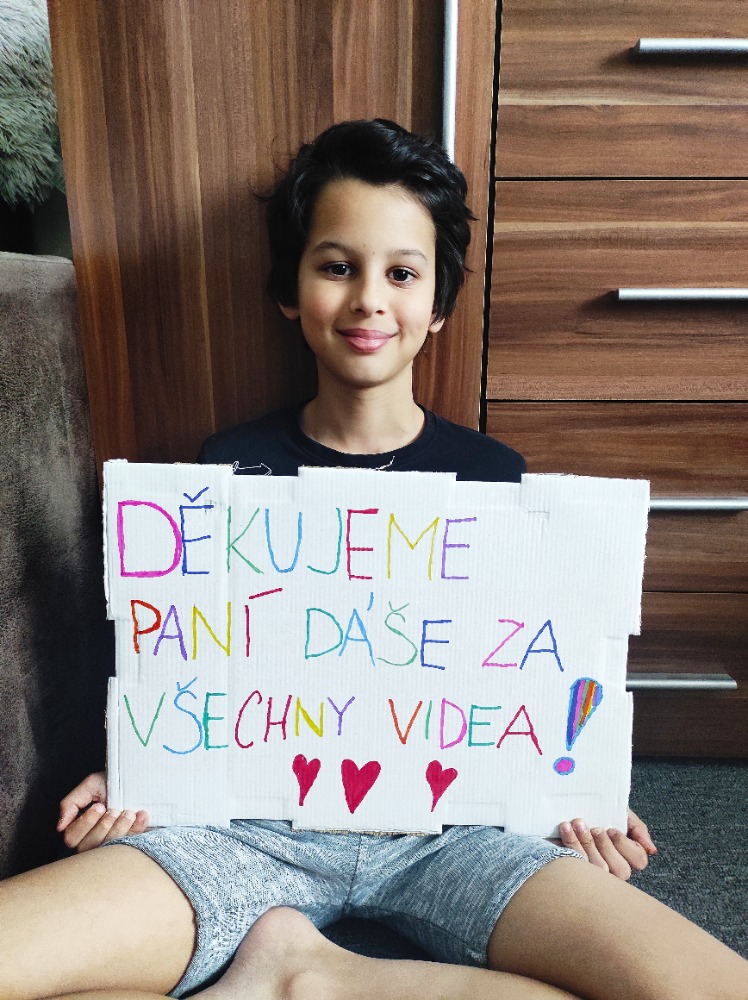 DĚKUJEME
PANÍ DÁŠE ZA
VŠECHNY VIDEA!